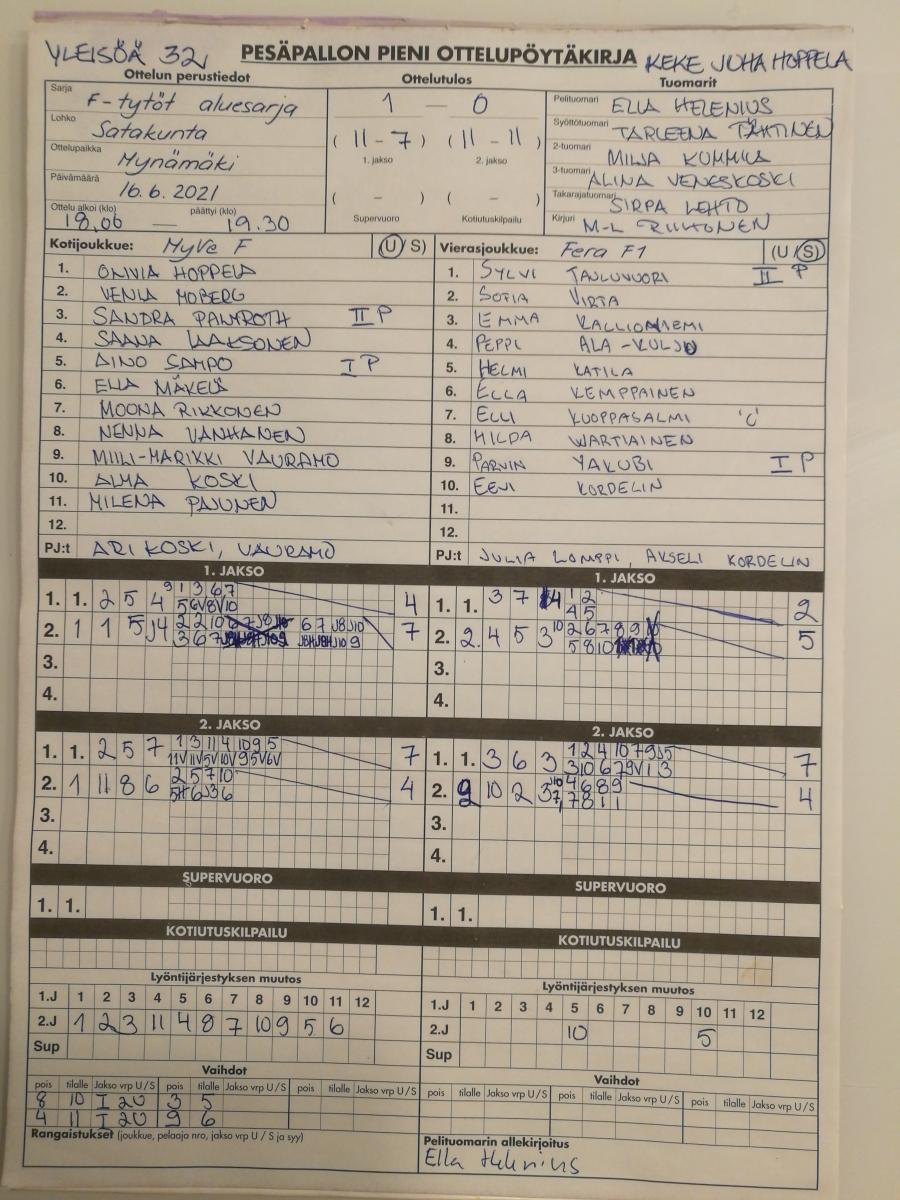 YLEISÖÄ 32 PESÄPALLON PIENI OTTELUPÖYTÄKIRJA KEKE JUHA HOPPELA
Ottelun perustiedot Ottelutulos Tuomarit
Sarja F-tytöt aluesarja
Lohko Satakunta
Ottelupaikka Mynämäki
Päivämäärä 16.6.2021
Ottelu alkoi (klo) päättyi (klo)
18.00 — 19.30
1 — 0
(11 - 7) (11 - 11)
1. jakso 2. jakso
( - ) ( - )
Supervuoro Kotiutuskilpailu
Pelituomari ELLA HELENIUS
Syöttötuomari TARLEENA TÄHTINEN
2-tuomari MILJA KUMMILA
3-tuomari ALINA VENESKOSKI
Takarajatuomari SIRPA LEHTO
Kirjuri M-L RIIHONEN
Kotijoukkue: MyVe F (U/S)
1. OLIVIA HOPPELA
2. VENLA MOBERG
3. SANDRA PALMROTH II P
4. SAANA LAAKSONEN
5. AINO SAMPO I P
6. ELLA MÄKELÄ
7. MOONA RIKKONEN
8. NENNA VANHANEN
9. MIILI-MARIKKI VAURAMO
10. ALMA KOSKI
11. MILENA PAJUNEN
12.
PJ:t ARI KOSKI, VAURAMO
Vierasjoukkue: Fera F1 (U/S)
1. SYLVI TAULUVUORI II P
2. SOFIA VIRTA
3. EMMA KALLIONIEMI
4. PEPPI ALA-KULJU
5. HELMI KATILA
6. ELLA KEMPPAINEN
7. ELLI KUOPPASALMI 'C'
8. HILDA WARTIAINEN
9. PARVIN YAKUBI I P
10. EEVI KORDELIN
11.
12.
PJ:t JULIA LOMPPI, AKSELI KORDELIN
1. JAKSO
1. 1. 2 5 4 9 1 3 6 7 4
5 6V 8V 10
2. 1 1 5 J4 2 2 10 6 7 J8 J10 7
3 6 7 9
3.
4.
1. JAKSO
1. 1. 3 7 4 1 2 2
4 5
2. 2. 4 5 3 10 2 6 7 8 9 5
5 8 10
3.
4.
2. JAKSO
1. 1. 2 5 7 1 3 11 4 10 9 5 7
11V 11V 5V 10V 9 5V 6V
2. 1 11 8 6 2 5 7 10 4
5H 6 J3 6
3.
4.
2. JAKSO
1. 1. 3 6 3 1 2 4 10 7 9 J5 7
3 10 6 7 9V 1 3
2. 9 10 2 3 J10 4 6 8 9 4
7, 7 8 1 1
3.
4.
SUPERVUORO
1. 1.
SUPERVUORO
1. 1.
KOTIUTUSKILPAILU
KOTIUTUSKILPAILU
Lyöntijärjestyksen muutos
1.J 1 2 3 4 5 6 7 8 9 10 11 12
2.J 1 2 3 11 4 8 7 10 9 5 6
Sup
Lyöntijärjestyksen muutos
1.J 1 2 3 4 5 6 7 8 9 10 11 12
2.J 10 5
Sup
Vaihdot
pois tilalle Jakso vrp U/S pois tilalle Jakso vrp U/S pois tilalle Jakso vrp U/S
8 10 I 2U 3 5
4 11 I 2U 9 6
Vaihdot
pois tilalle Jakso vrp U/S pois tilalle Jakso vrp U/S pois tilalle Jakso vrp U/S
Rangaistukset (joukkue, pelaaja nro, jakso vrp U / S ja syy)
Pelituomarin allekirjoitus
Ella Helenius